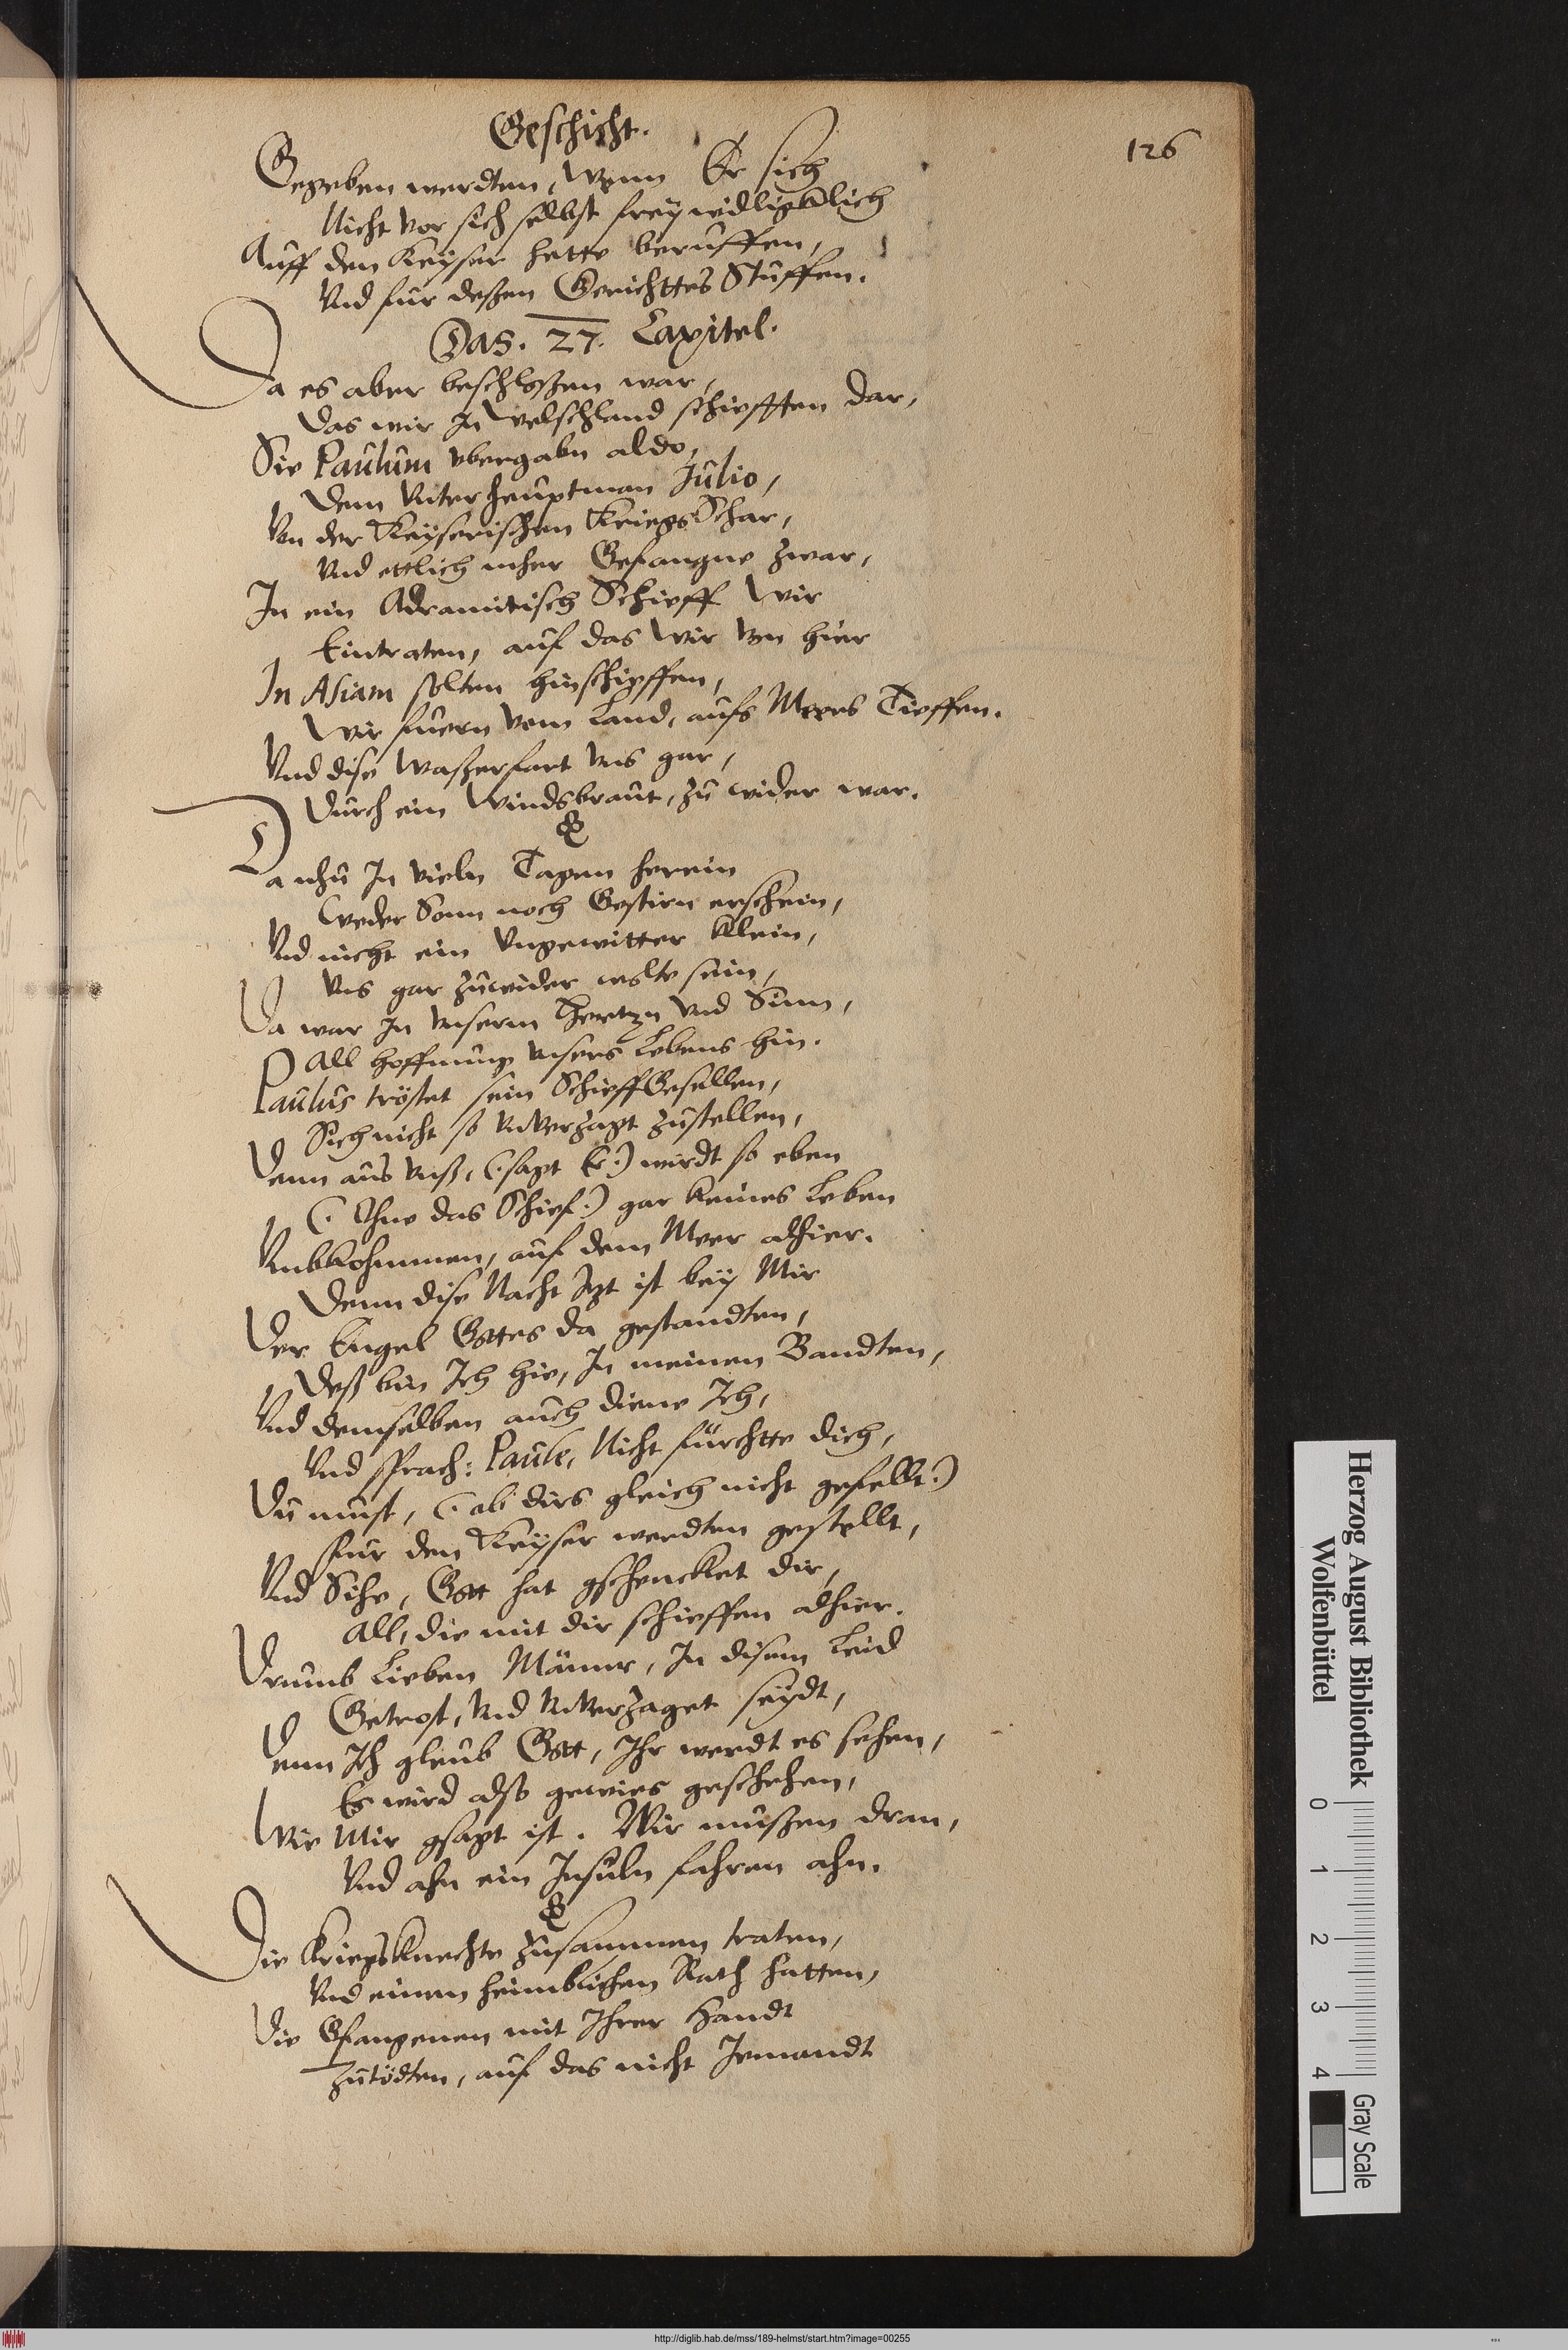 Geschicht.
126
Gegeben werdten, Wenn Er sich
Nicht vor sich selbst freÿwilligklich
Auff den Keÿser hette beruffen,
Vnd fur deßen Gerichttes Stuffen.
Das. 27. Capitel.
Da es aber beschloßen war,
Das wir In Welschland schiefften dar,
Sie Paulum vbergabn aldo,
Dem Vnterheuptman Julio,
Von der Keÿserischen KriegsSchar,
Vnd ettlich meher Gefangne zwar,
In ein Adramitisch Schieff Wir
Eintraten, auf das Wir von hier
In Asiam solten hinschieffen,
Wir fuern vom Land, aufs Meeres Tieffen.
Vnd dise Waßerfart vns gar,
Durch ein Windsbraut, zu wider war.
Da nhu In vieln Tagen herein
Weder Sonn noch Gestirn erschein,
Vnd nicht ein Vngewitter klein,
Vns gar zuwider wolte sein,
Da war In vnserm Hertzn vnd Sinn,
All hoffnung vnsers Lebens hin.
Paulus tröstet sein SchieffGesellen,
Sich nicht so vnverzagt zustellen,
Denn aus vnß, (: sagt Er :) wirdt so eben
(: Ohne das Schief :) gar keines Leben
Vmbkohmmen, auf dem Meer alhier.
Denn dise Nacht Itzt ist beÿ Mir
Der Engel Gottes da gestandten,
Deß bin Ich hie, In meinen Bandten,
Vnd demselben auch diene Ich,
Vnd sprach: Paule, Nicht fürchtte dich,
Du must, (: ob dirs gleich nicht gefellt :)
Fur den Keÿser werdten gestellt,
Vnd Sihe, Gott hat gschencket dir,
All, die mit dir schieffen alhier.
Drumb Lieben Männer, In disem Leid
Getrost, vnd vnverzaget seÿdt,
Denn Ich gleub Gott, Ihr werdt es sehen,
Es wird also gewies geschehen,
Wie Mir gsagt ist. Wir mußen dran,
Vnd ahn ein Insuln fahren ahn.
Die Kriegsknechte zusammen traten,
Vnd einen heimblichen Rath hatten,
Die Gfangenen mit Ihrer Handt
Zutödten, auf das nicht Iemandt
Herzog August Bibliothek
Wolfenbüttel
0 1 2 3 4
Gray Scale
http://diglib.hab.de/mss/189-helmst/start.htm?image=00255